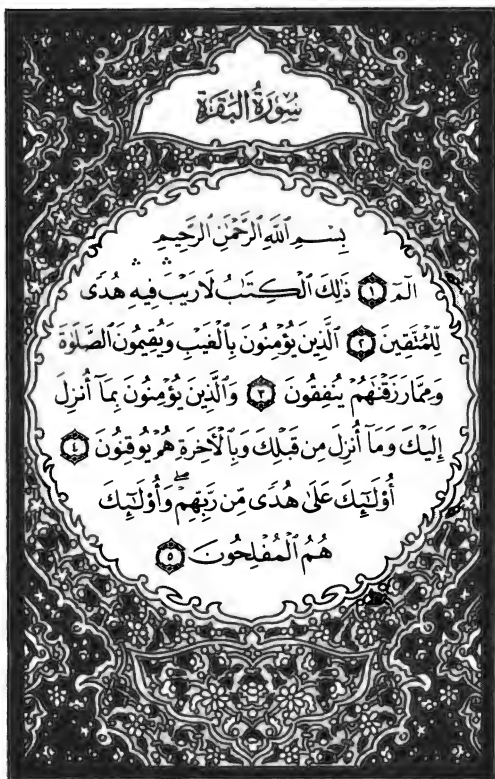 سُورَةُ البَقَرَةِ
بِسْمِ اللَّهِ الرَّحْمَٰنِ الرَّحِيمِ
الٓمٓ ١ ذَٰلِكَ ٱلْكِتَٰبُ لَا رَيْبَ ۛ فِيهِ ۛ هُدًى
لِّلْمُتَّقِينَ ٢ ٱلَّذِينَ يُؤْمِنُونَ بِٱلْغَيْبِ وَيُقِيمُونَ ٱلصَّلَوٰةَ
وَمِمَّا رَزَقْنَٰهُمْ يُنفِقُونَ ٣ وَٱلَّذِينَ يُؤْمِنُونَ بِمَآ أُنزِلَ
إِلَيْكَ وَمَآ أُنزِلَ مِن قَبْلِكَ وَبِٱلْأَخِرَةِ هُمْ يُوقِنُونَ ٤
أُو۟لَٰٓئِكَ عَلَىٰ هُدًى مِّن رَّبِّهِمْ ۖ وَأُو۟لَٰٓئِكَ
هُمُ ٱلْمُفْلِحُونَ ٥